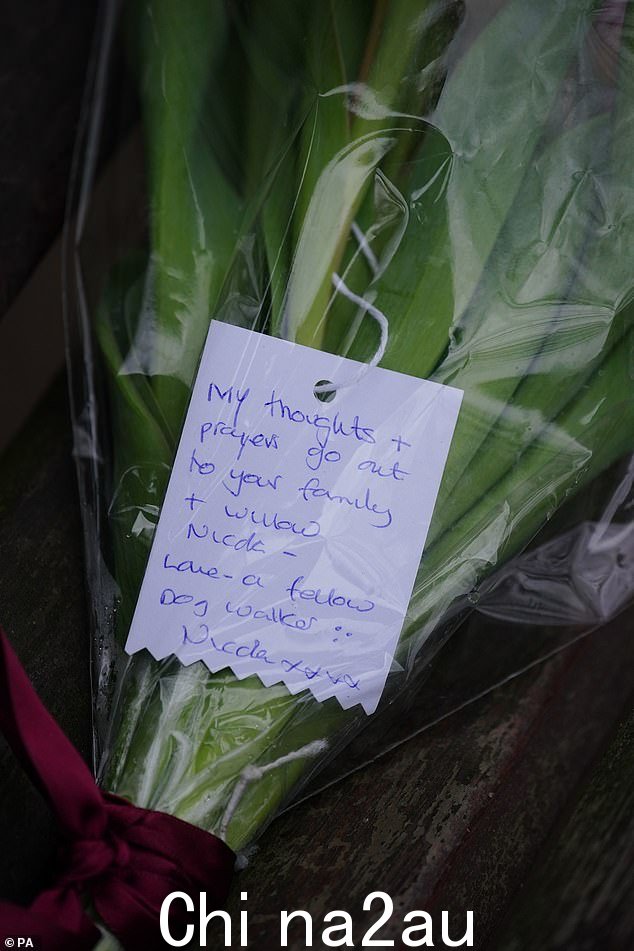 My thoughts +
prayers go out
to your family
+ willow
Nicola -
Love - a fellow
Dog walker ::
Nicola xxxx
© PA
Chi na2au